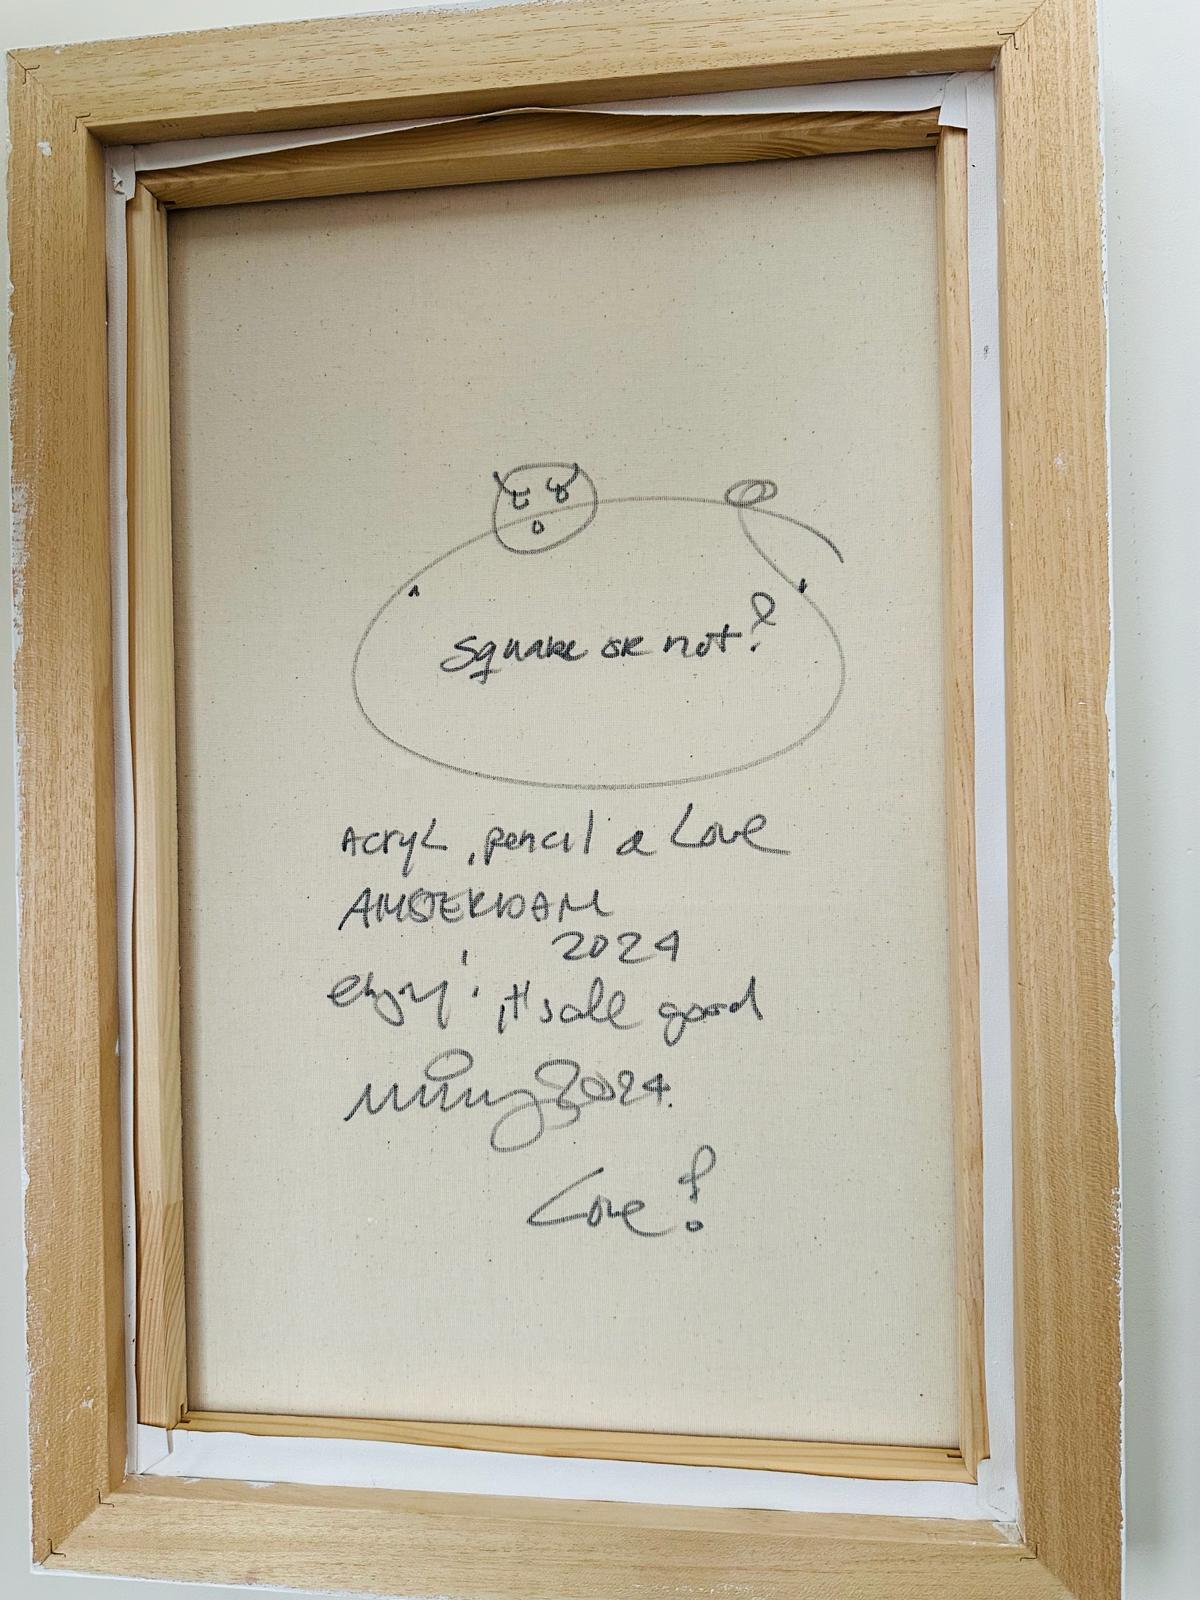 Square or not?
Acryl, pencil & Love
AMSTERDAM
2024
enjoy! it's all good
2024.
Love!